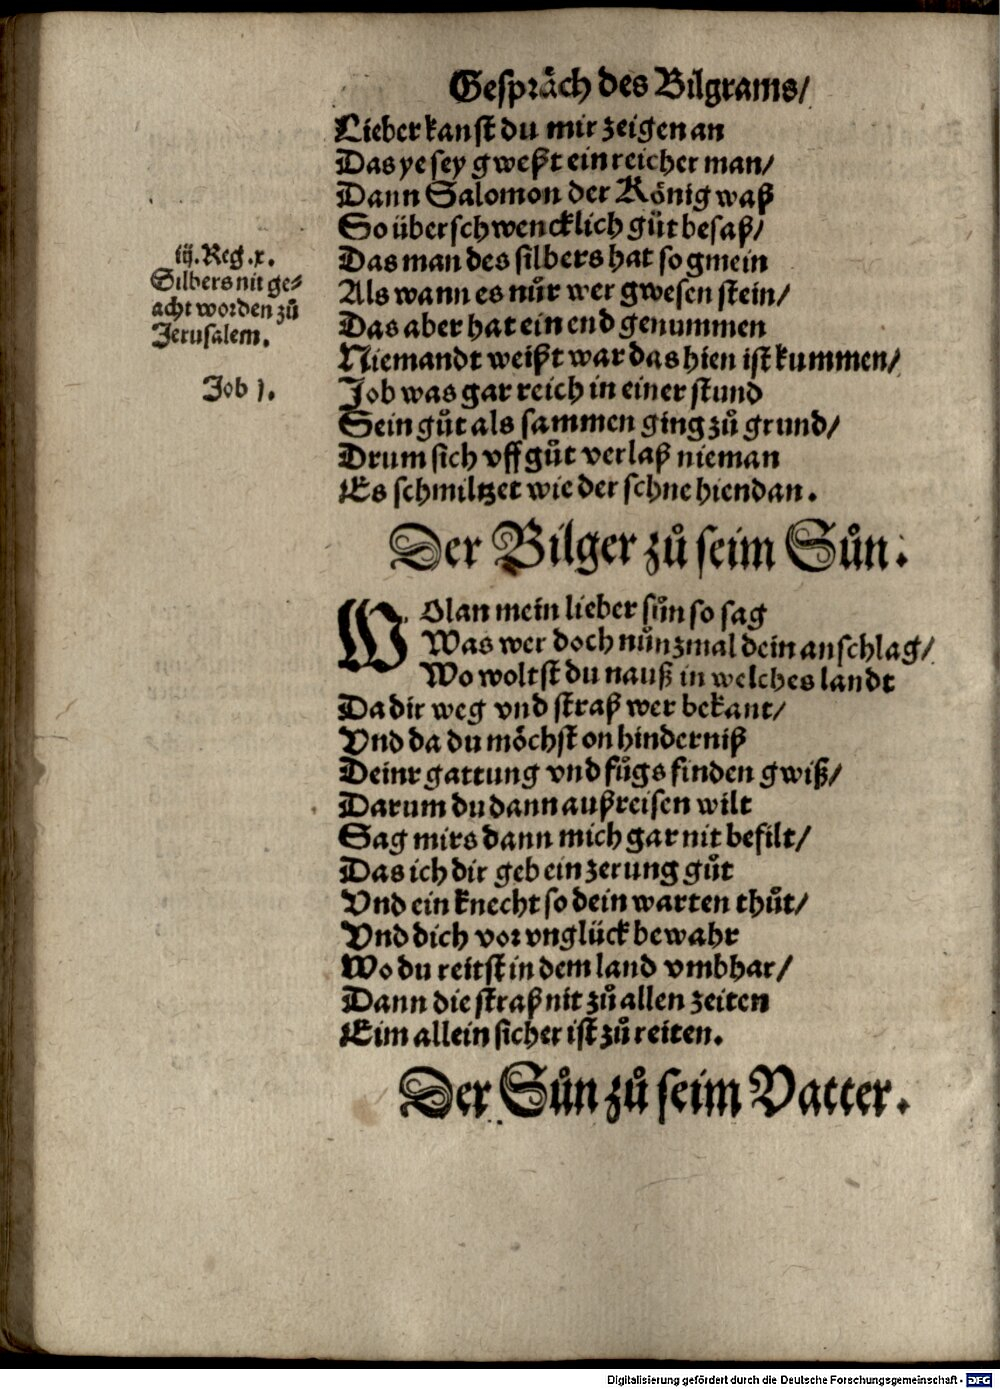 Gespräch des Bilgrams/
Lieber kanst du mir zeigen an
Das ye sey gweßt ein reicher man/
Dann Salomon der König waß
So überschwencklich gůt besaß/
iij. Reg. x.
Silbers nit ge-
acht worden zů
Jerusalem.
Das man des silbers hat so gmein
Als wann es nůr wer gwesen stein/
Das aber hat ein end genummen
Niemandt weißt war das hien ist kummen/
Job j.
Job was gar reich in einer stund
Sein gůt als sammen ging zů grund/
Drum sich vff gůt verlaß nieman
Es schmiltzet wie der schne hiendan.
Der Bilger zů seim Sůn.
WOlan mein lieber sůn so sag
Was wer doch nůnzmal dein anschlag/
Wo woltst du nauß in welches landt
Da dir weg vnd straß wer bekant/
Vnd da du möchst on hinderniß
Deinr gattung vnd fůgs finden gwiß/
Darum du dann außreisen wilt
Sag mirs dann mich gar nit befilt/
Das ich dir geb ein zerung gůt
Vnd ein knecht so dein warten thůt/
Vnd dich vor vnglück bewahr
Wo du reitst in dem land vmbhar/
Dann die straß nit zů allen zeiten
Eim allein sicher ist zů reiten.
Der Sůn zů seim Vatter.
Digitalisierung gefördert durch die Deutsche Forschungsgemeinschaft - DFG